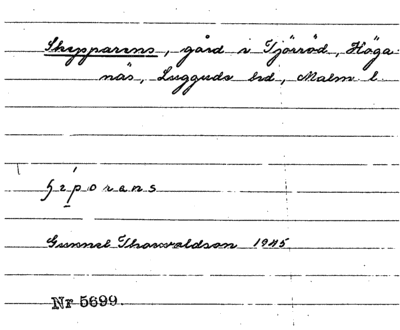 Skepparens, gård i Tjörröd, Höga-
näs, Luggude hd, Malm. l.
Gunnel Thorvaldson 1945
Nr 5699.